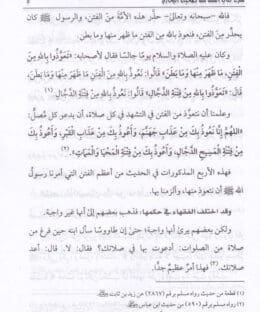 فالله -سبحانه وتعالى- حذَّر هذه الأمَّة مِنَ الفتن، والرسول ﷺ
يحذِّر مِنَ الفتن، فنعوذ بالله مِنَ الفتن ما ظهر منها وما بطن.
وكان عليه الصلاة والسلام يومًا جالسًا فقال لأصحابه: «تَعَوَّذُوا بِاللهِ مِنَ
الْفِتَنِ، مَا ظَهَرَ مِنْهَا وَمَا بَطَنَ» قَالُوا: نَعُوذُ بِاللهِ مِنَ الْفِتَنِ مَا ظَهَرَ مِنْهَا وَمَا بَطَنَ، «تَعَوَّذُوا بِاللهِ
مِنْ فِتْنَةِ الدَّجَّالِ» قَالُوا: نَعُوذُ بِاللهِ مِنْ فِتْنَةِ الدَّجَّالِ (١)
وعلمنا أن نتعوَّذ مِنَ الفتن في التشهد في كل صلاة، أن يدعو كل مُصلٍّ:
«اللَّهُمَّ إِنَّا نَعُوذُ بِكَ مِنْ عَذَابِ جَهَنَّمَ، وَأَعُوذُ بِكَ مِنْ عَذَابِ الْقَبْرِ، وَأَعُوذُ بِكَ
مِنْ فِتْنَةِ الْمَسِيحِ الدَّجَّالِ، وَأَعُوذُ بِكَ مِنْ فِتْنَةِ الْمَحْيَا وَالْمَمَاتِ». (٢)
فهذه الأربع المذكورات في الحديث من أعظم الفتن التي أمرنا رسول
الله ﷺ أن نتعوذ منها، وألزمنا بها.
وقد اختلف الفقهاء في حكمها، فذهب بعضهم إلى أنها غير واجبة.
ولكن بعضهم يرى أنها واجبة؛ حتى إن طاووسًا سأل ابنه حين فرغ من
صلاة من الصلوات: أدعوت بها في صلاتك؟ فقال: لا. قال: أعد
صلاتك. (٣) فهذا أمرٌ عظيمٌ جدًّا.
(١) قطعة من حديث رواه مسلم برقم (٢٨٦٧) عن زيد بن ثابت
(٢) رواه مسلم برقم (٥٩٠) من حديث ابن عباس